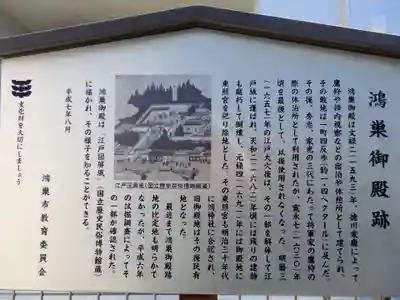 鴻巣御殿跡
鴻巣御殿は文禄二(一五九三)年、徳川家康によって
鷹狩や領内視察などの宿泊や休憩所として建てられ、
その敷地は一町四反歩(一・四ヘクタール)に及んだ。
その後、秀忠、家光の三代にわたって将軍家の鷹狩の
際の休泊所として利用されたが、寛永七(一六三〇)年
頃を最後として、以後使用されなくなった。明暦三
(一六五七)年の江戸大火後は、その一部を解体して江
戸城に運ばれ、天和二(一六八二)年頃には残りの建物
も腐朽して倒壊し、元禄四(一六九一)年には御殿地に
東照宮を祀り除地とした。その東照宮も明治三十年代
に鴻神社に合祀され、
旧御殿地はその後民有
地となった。
最近まで鴻巣御殿跡
地の比定地も明らかで
なかったが、平成六年
の試掘調査によってそ
の一部が確認された。
江戸図屏風(国立歴史民俗博物館蔵)
鴻巣御殿は「江戸図屏風」(国立歴史民俗博物館蔵)
に描かれ、その様子を知ることができる。
平成七年八月
鴻巣市教育委員会
文化財を大切にしましょう